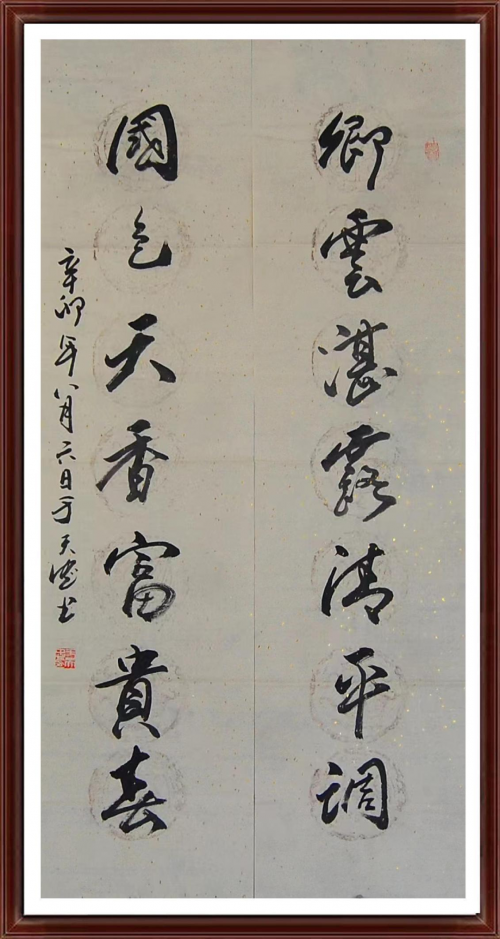 卿雲湛露清平調
國色天香富貴春
辛卯年八月六日于天德书